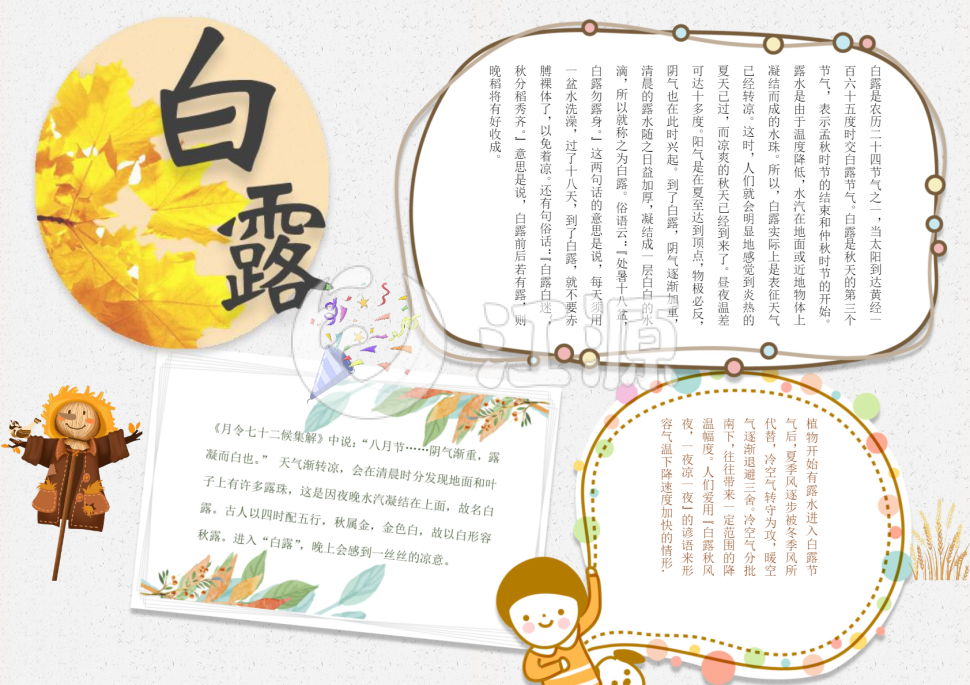 白露
白露是农历二十四节气之一，当太阳到达黄经一
百六十五度时交白露节气。白露是秋天的第三个
节气，表示孟秋时节的结束和仲秋时节的开始。
露水是由于温度降低，水汽在地面或近地物体上
凝结而成的水珠。所以，白露实际上是表征天气
已经转凉。这时，人们就会明显地感觉到炎热的
夏天已过，而凉爽的秋天已经到来了。昼夜温差
可达十多度。阳气是在夏至达到顶点，物极必反，
阴气也在此时兴起。到了白露，阴气逐渐加重，
清晨的露水随之日益加厚，凝结成一层白白的水
滴，所以就称之为白露。俗语云：『处暑十八盆，
白露勿露身。』这两句话的意思是说，每天须用
一盆水洗澡，过了十八天，到了白露，就不要赤
膊裸体了，以免着凉。还有句俗话：『白露白迷迷，
秋分稻秀齐。』意思是说，白露前后若有露，则
晚稻将有好收成。
《月令七十二候集解》中说：“八月节……阴气渐重，露
凝而白也。” 天气渐转凉，会在清晨时分发现地面和叶
子上有许多露珠，这是因夜晚水汽凝结在上面，故名白
露。古人以四时配五行，秋属金，金色白，故以白形容
秋露。进入“白露”，晚上会感到一丝丝的凉意。
植物开始有露水进入白露节
气后，夏季风逐步被冬季风所
代替，冷空气转守为攻，暖空
气逐渐退避三舍。冷空气分批
南下，往往带来一定范围的降
温幅度。人们爱用『白露秋风
夜，一夜凉一夜』的谚语来形
容气温下降速度加快的情形.
江源